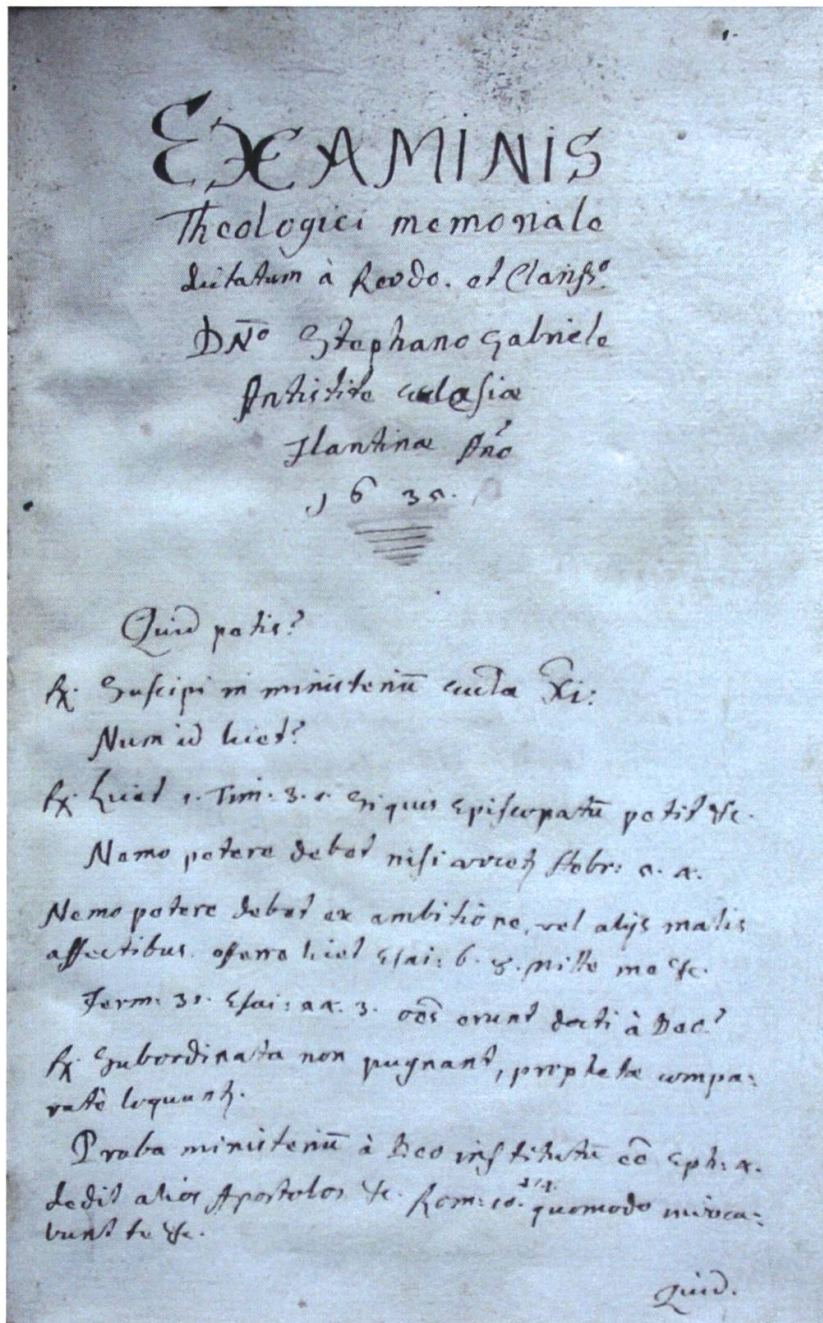 1.
EXAMINIS
Theologici memoriale
dictatum à Revdo. et Clariss.º
DNº Stephano Gabriele
Antistite ecclesiæ
Ilantinæ Año
163
Quid petis?
℞. Suscipi in ministeriū Xi:
Num id licet?
℞. Licet 1. Tim: 3. 1. Siquis Episcopatū petit &c.
Nemo petere debet nisi Hebr: 5. 4.
Nemo petere debet ex ambitione, vel alijs malis
affectibus. offerre licet Esai: 6. 8. mitte me &c.
Jerem: 31. Esai: 54. 3. oēs erunt docti à Deo?
℞. Subordinata non pugnant, prophetæ compa:
ratè loquunt.
Proba ministeriū à Deo institutū eē Eph: 4.
dedit alios Apostolos &c. Rom: 10. 14. quomodo invoca:
bunt te &c.
Quid.